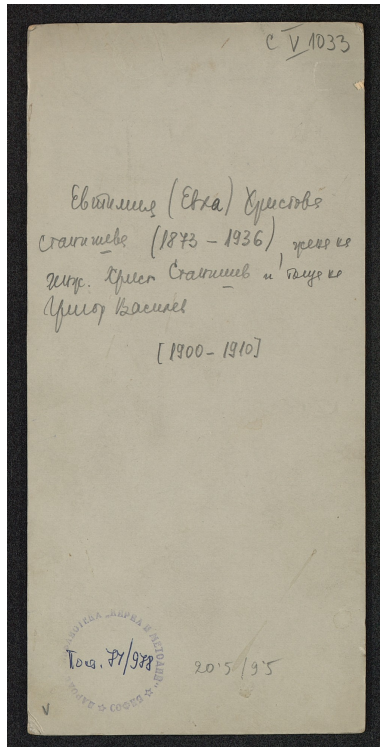 С V 1033
Евтимия (Евка) Христова
Станишева (1873 – 1936) жена на
инж. Христо Станишев и тъща на
Григор Василев
[1900 – 1910]
НАРОДНА БИБЛИОТЕКА „КИРИЛ И МЕТОДИЙ“ СОФИЯ
77/978
205/95
V